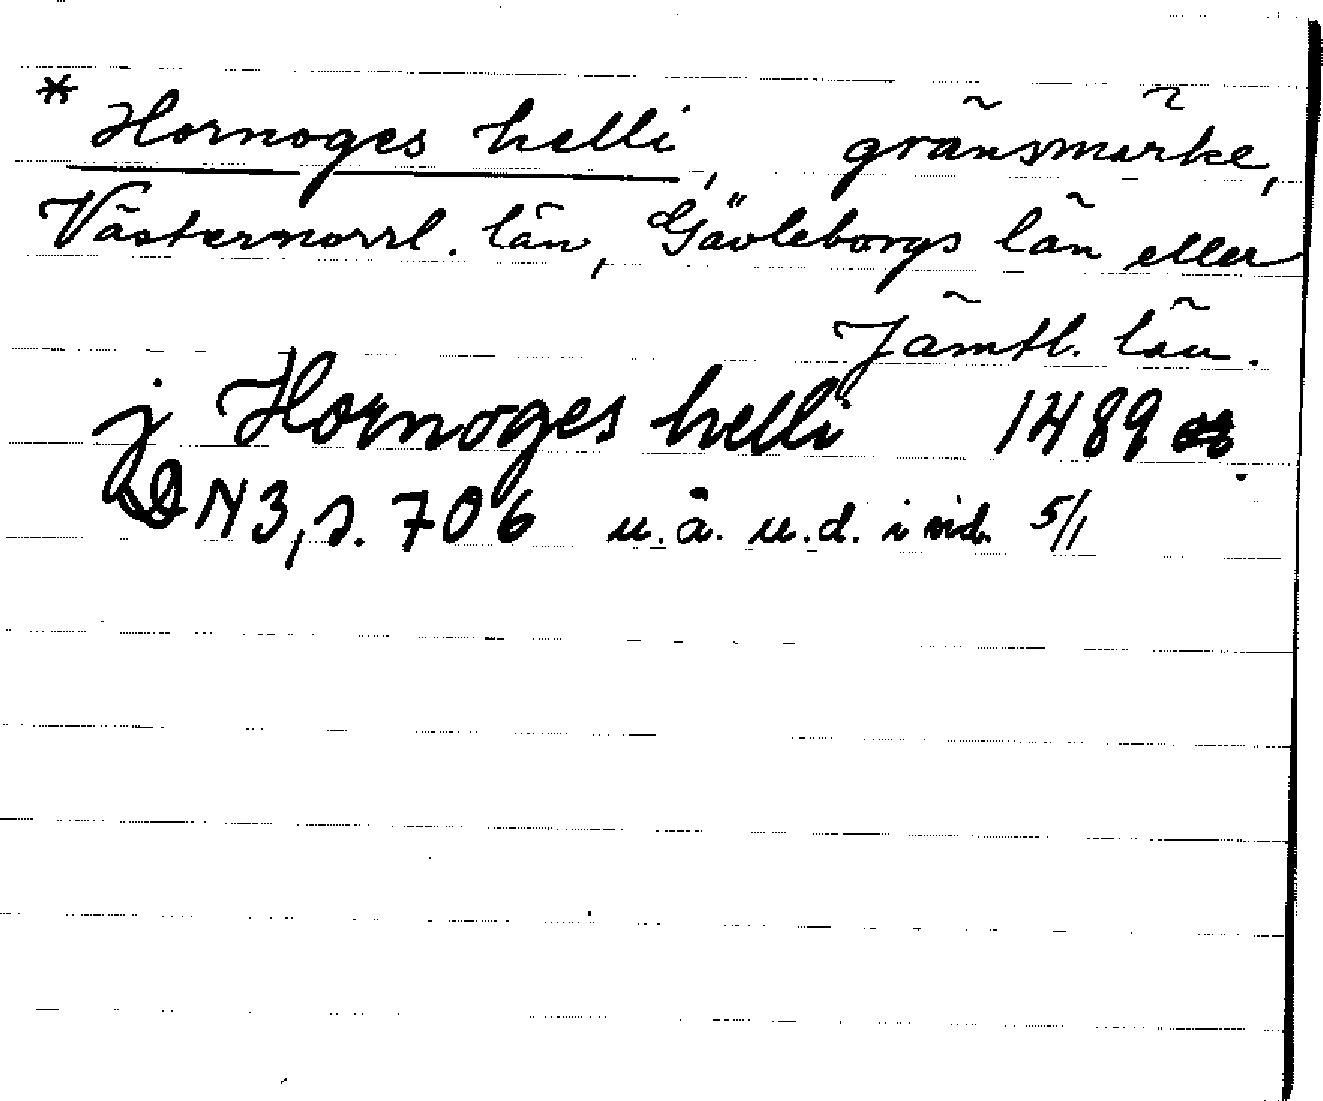 * Hornoges helli, gränsmärke,
Västernorrl. län, Gävleborgs län eller
Jämtl. län.
j Hornoges helli 1489
DN 3, s. 706 u.å. u.d. i vid. 5/1